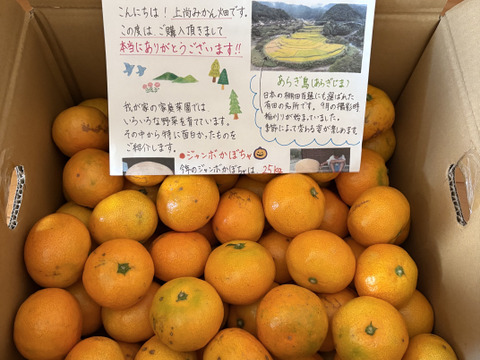 こんにちは！上尚みかん畑です。
この度は ご購入頂きまして
本当にありがとうございます!!
あらぎ島(あらぎじま)
日本の棚田百選にも選ばれた
有田の名所です。9月の撮影時
稲刈りが始まっていました。
季節によって変わる姿が楽しめます。
我が家の家庭菜園では
いろいろな野菜を育てています。
その中から特に面白かったものを
ご紹介します。
●ジャンボかぼちゃ
今年のジャンボかぼちゃは 25kg